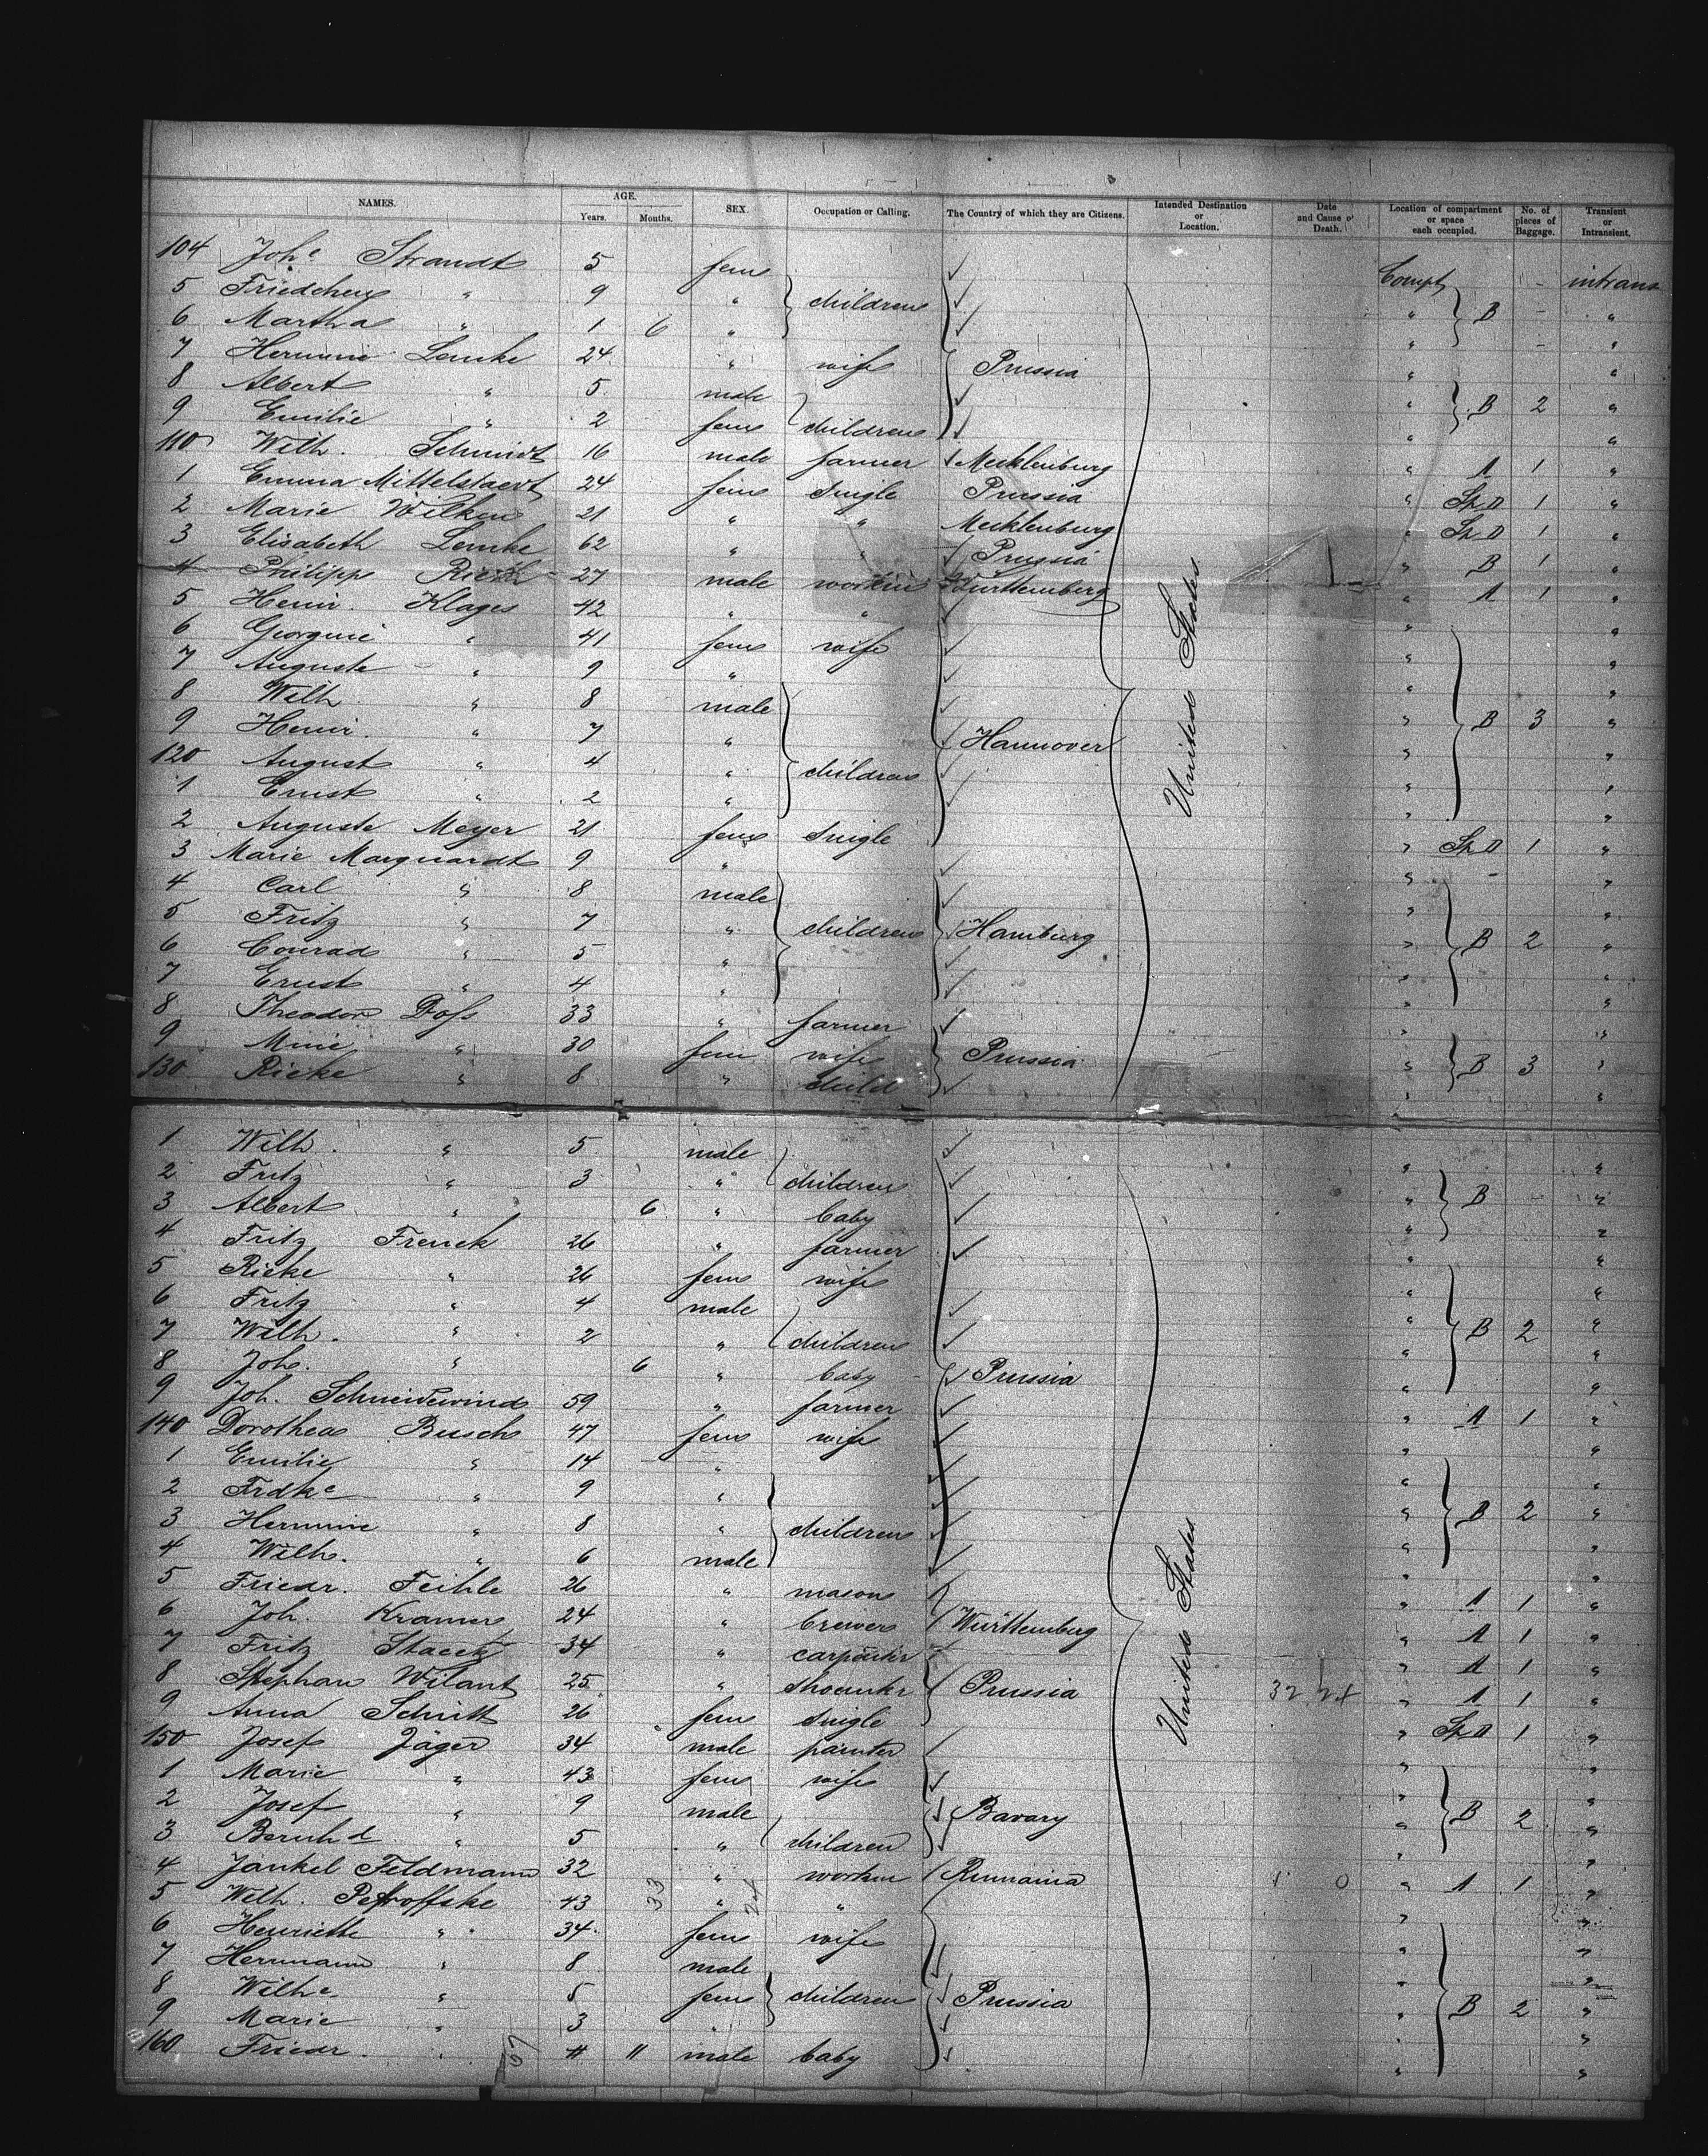 NAMES. AGE. Years. Months. SEX. Occupation or Calling. The Country of which they are Citizens. Intended Destination or Location. Date and Cause of Death. Location of compartment or space each occupied. No. of pieces of Baggage. Transient or Intransient.
104 Joh.e Strandt 5 fem Compt - intrans
5 Friedchen " 9 " children " B - "
6 Martha " 1 6 " " - "
7 Hermine Lemke 24 " wife Prussia " "
8 Albert " 5 male " B 2 "
9 Emilie " 2 fem children " "
110 Wilh. Schmidt 16 male farmer Mecklenburg " A 1 "
1 Emma Mittelstaedt 24 fem single Prussia " Sp D 1 "
2 Marie Wilken 21 " " Mecklenburg " Sp D 1 "
3 Elisabeth Lemke 62 " " Prussia " B 1 "
4 Philipp 27 male workm Württemberg " A 1 "
5 Heinr. Klages 42 " " " "
6 Georgine " 41 fem wife " "
7 Auguste " 9 " " "
8 Wilh " 8 male " B 3 "
9 Heinr. " 7 " Hannover " "
120 August " 4 " children " "
1 Ernst " 2 " " "
2 Auguste Meyer 21 fem single " Sp D 1 "
3 Marie Marquardt 9 " " "
4 Carl " 8 male " "
5 Fritz " 7 " children Hamburg " B 2 "
6 Conrad " 5 " " "
7 Ernst " 4 " " "
8 Theodor Doss 33 " farmer " "
9 Mine " 30 fem wife Prussia " B 3 "
130 Rieke " 8 " child " "
United States
1 Wilh. " 5 male " "
2 Fritz " 3 " children " B - "
3 Albert " 6 " baby " "
4 Fritz Frenck 26 " farmer " "
5 Rieke " 26 fem wife " "
6 Fritz " 4 male " "
7 Wilh. " 2 " children " B 2 "
8 Joh. " 6 " baby Prussia " "
9 Joh. Schneidewind 59 " farmer " A 1 "
140 Dorothea Busch 47 fem wife " "
1 Emilie " 14 " " "
2 Frdke " 9 " " B 2 "
3 Hermine " 8 " children " "
4 Wilh. " 6 male " "
5 Friedr. Feihle 26 " mason " A 1 "
6 Joh. Kramer 24 " brewer Württemberg " A 1 "
7 Fritz Staeck 34 " carpenter " A 1 "
8 Stephan Wilant 25 " shoemkr Prussia 32 24 " A 1 "
9 Anna Schutt 26 fem single " Sp D 1 "
150 Josef Jäger 34 male painter " "
1 Marie " 43 fem wife " "
2 Josef " 9 male Bavary " B 2 "
3 Bernhd " 5 " children " "
4 Jankel Feldmann 32 " workm Rumania 0 " A 1 "
5 Wilh. Petroffske 43 33 " " " "
6 Henriette " 34 fem wife " "
7 Hermann " 8 male " "
8 Wilhe " 5 fem children Prussia " B 2 "
9 Marie " 3 " " "
160 Friedr. " 11 male baby " "
United States